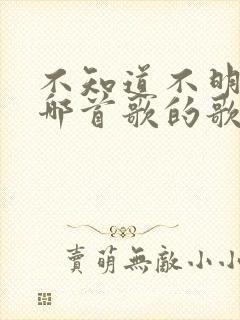 不知道不明
那首歌的歌
賣萌無敵小小